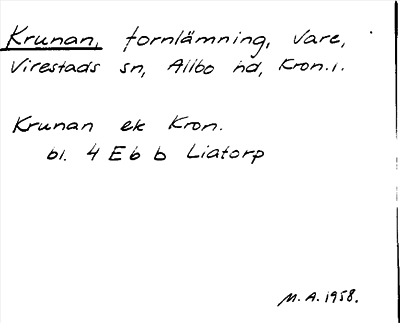 Krunan, fornlämning, Vare,
Virestads sn, Allbo hd, Kron.l.
Krunan ek Kron.
bl. 4 E b b Liatorp
M.A. 1958.